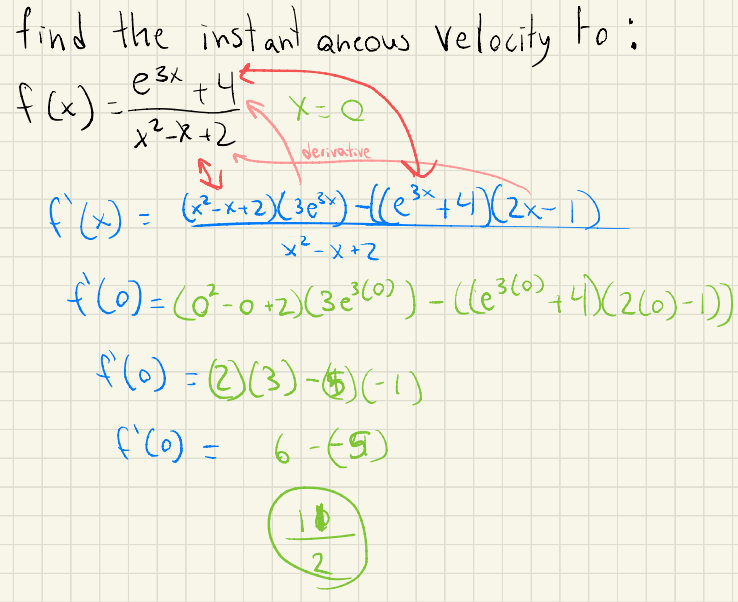 find the instantaneous velocity to:
f(x) = (e^3x + 4)/(x² - x + 2) x = 0
derivative
f'(x) = ((x² - x + 2)(3e^3x) - ((e^3x + 4)(2x - 1))/(x² - x + 2)
f'(0) = (0² - 0 + 2)(3e^3(0)) - ((e^3(0) + 4)(2(0) - 1))
f'(0) = (2)(3) - (5)(-1)
f'(0) = 6 - (-5)
11/2